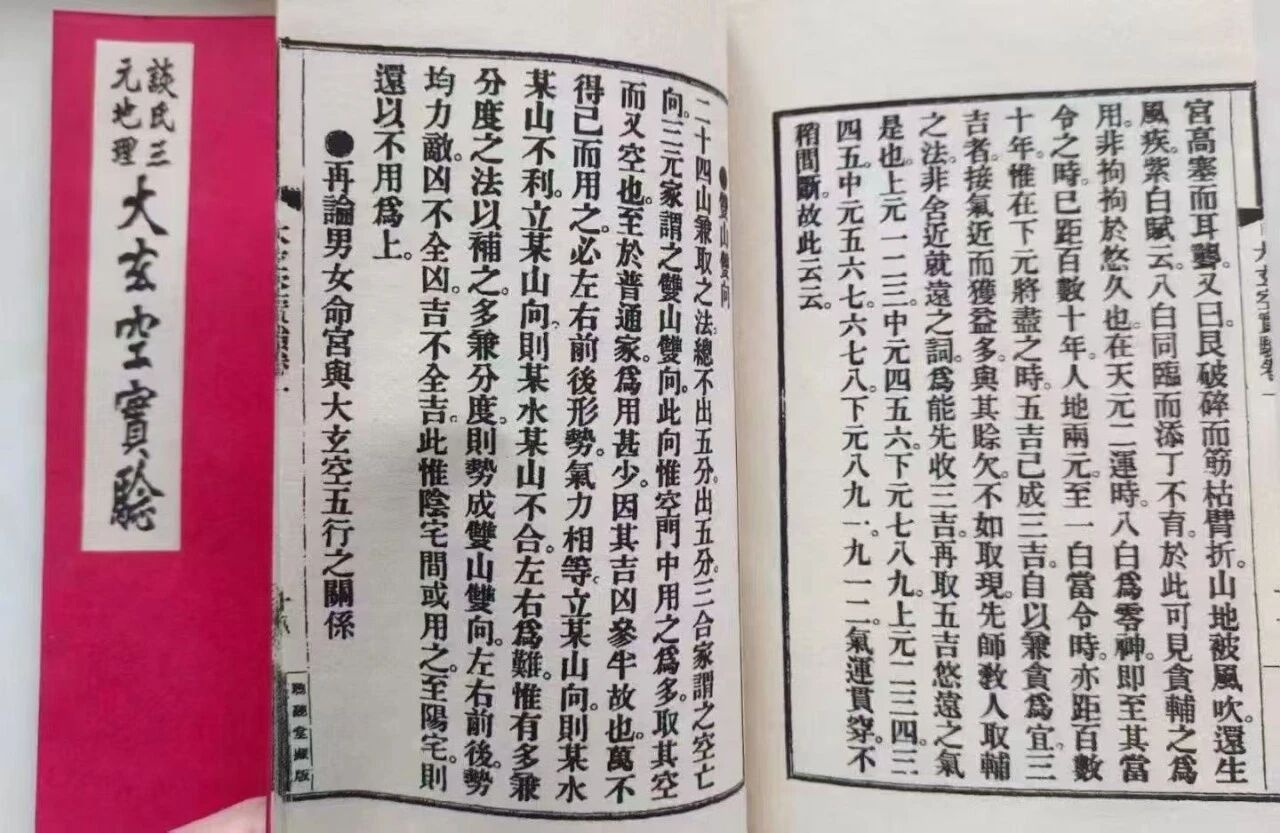 談氏三
元地理
大玄空實驗
宮高塞而耳聾。又曰。艮破碎而筋枯臂折。山地被風吹。還生
風疾。紫白賦云。八白同臨而添丁不育。於此可見貪輔之爲
用。非拘拘於悠久也。在天元二運時。八白爲零神。即至其當
令之時。已距百數十年。人地兩元。至一白當令時。亦距百數
十年。惟在下元將盡之時。五吉已成三吉。自以兼貪爲宜。三
吉者。接氣近而獲益多。與其賒欠。不如取現。先師教人取輔
之法。非舍近就遠之詞。爲能先收三吉。再取五吉悠遠之氣
是也。上元一二三。中元四五六。下元七八九。上元二三四。三
四五。中元五六七。六七八。下元八九一。九一二。氣運貫穿。不
稍間斷。故此云云。
大玄空實驗卷一
●雙山雙向
二十四山兼取之法。總不出五分。出五分。三合家謂之空亡
向。三元家謂之雙山雙向。此向惟空門中用之爲多。取其空
而又空也。至於普通家。爲用甚少。因其吉凶參半故也。萬不
得已而用之。必左右前後形勢。氣力相等。立某山向。則某水
某山不利。立某山向。則某水某山不合。左右爲難。惟有多兼
分度之法以補之。多兼分度。則勢成雙山雙向。左右前後。勢
均力敵。凶不全凶。吉不全吉。此惟陰宅間或用之。至陽宅。則
還以不用爲上。
●再論男女命宮與大玄空五行之關係
十八
聽堂藏版